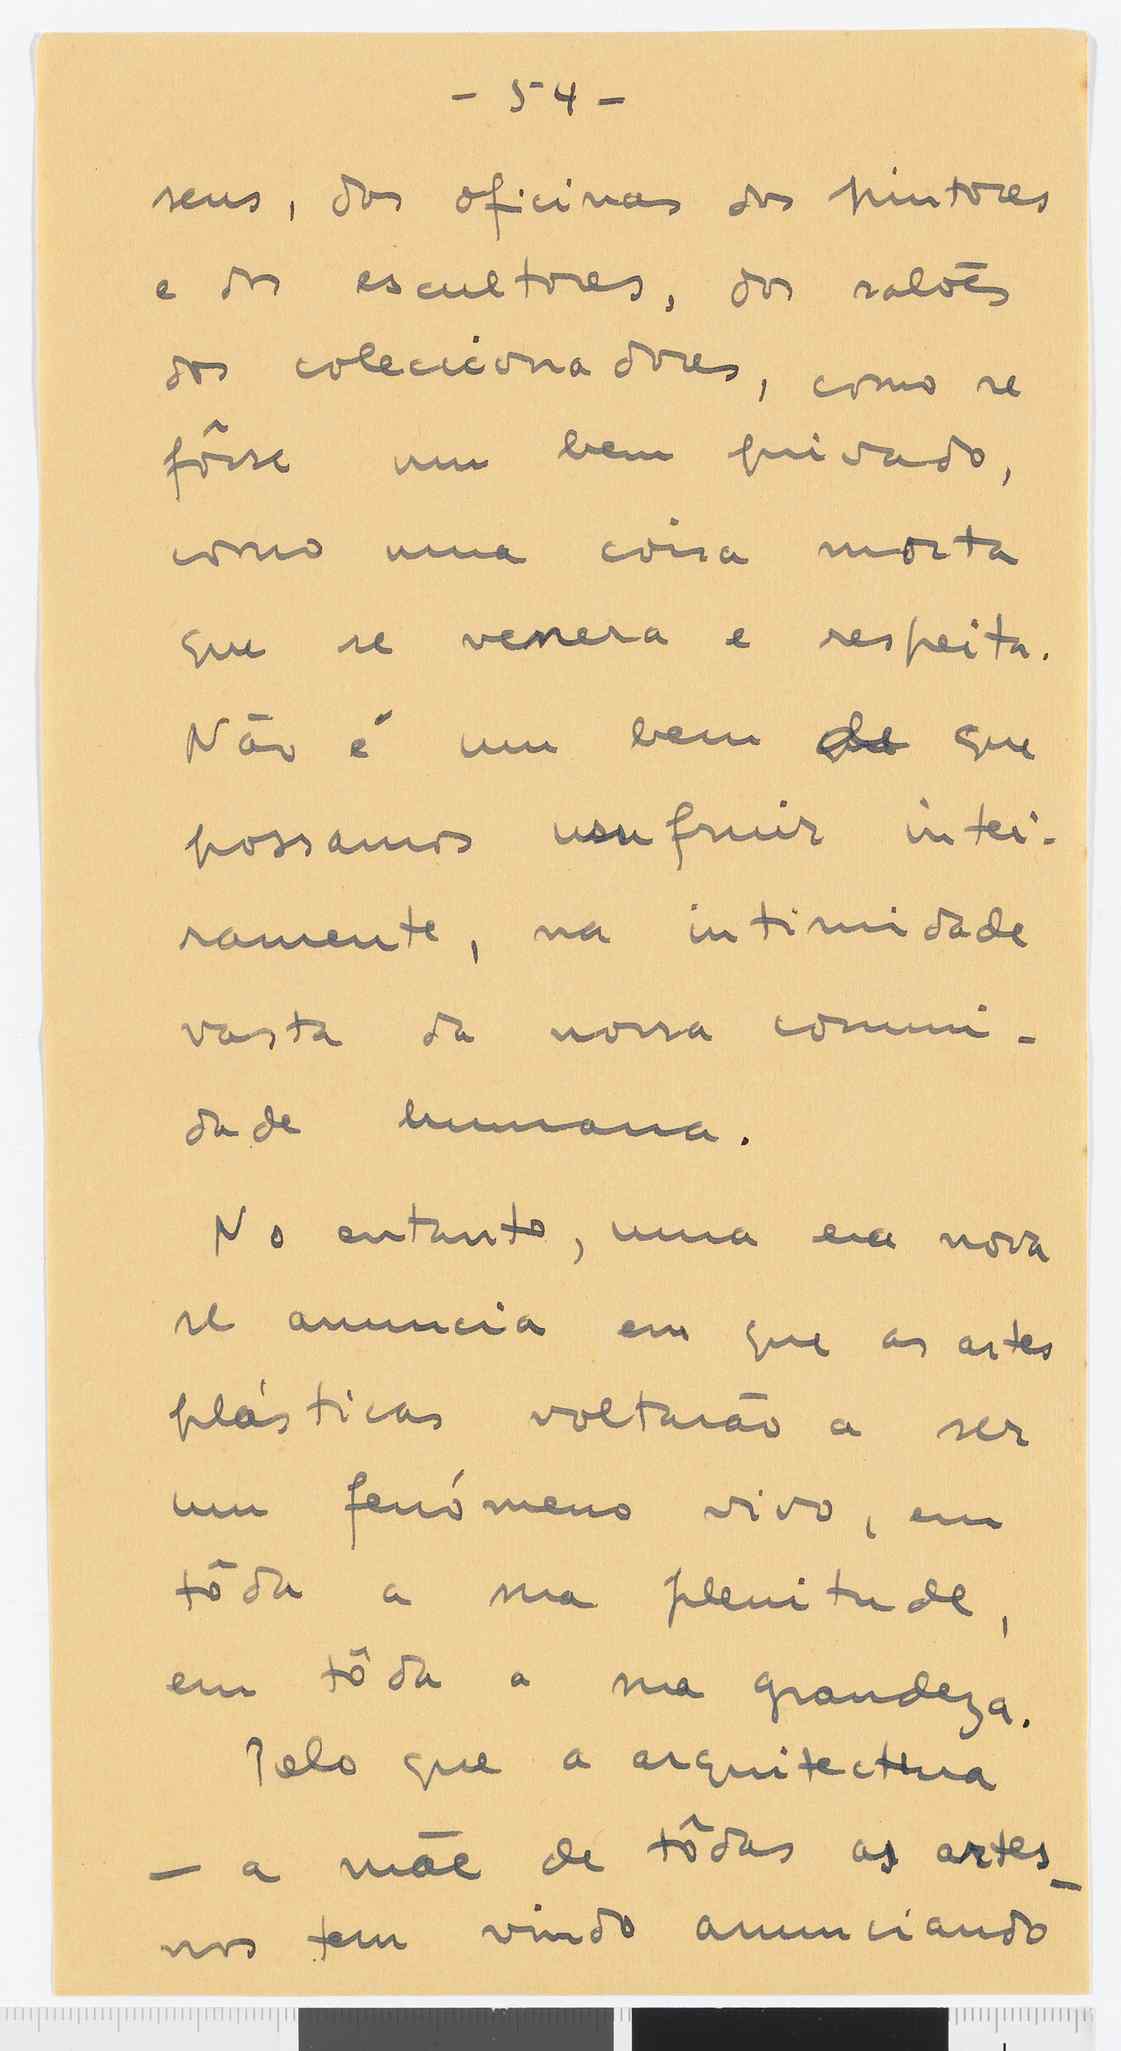 - 54 -
seus, das oficinas dos pintores
e dos escultores, dos salões
dos colecionadores, como se
fôsse um bem privado,
como uma coisa morta
que se venera e respeita.
Não é um bem de que
possamos usufruir intei-
ramente, na intimidade
vasta da nossa comuni-
dade humana.
No entanto, uma era nova
se anuncia em que as artes
plásticas voltarão a ser
um fenómeno vivo, em
tôda a sua plenitude,
em tôda a sua grandeza.
Pelo que a arquitectura
— a mãe de tôdas as artes —
nos tem vindo anunciando